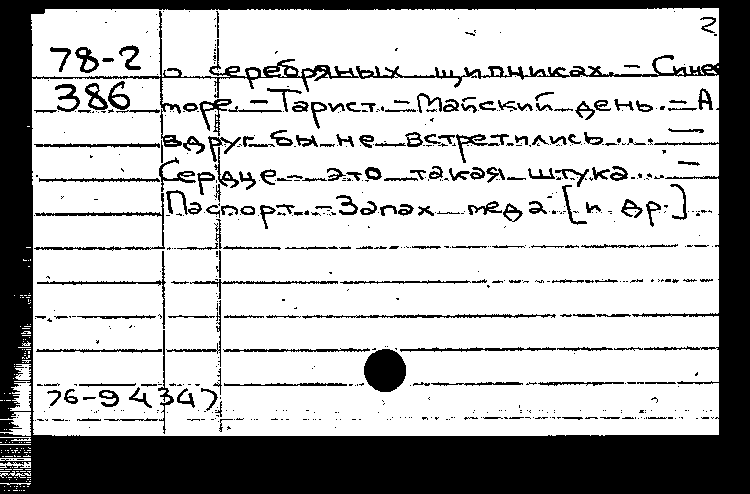 2
78-2 о серебряных щипчиках. – Синее
386 море. – Тарист. – Майский день. – А
вдруг бы не встретились... –
Сердце – это такая штука... –
Паспорт. – Запах меда [и др.]
76-94347